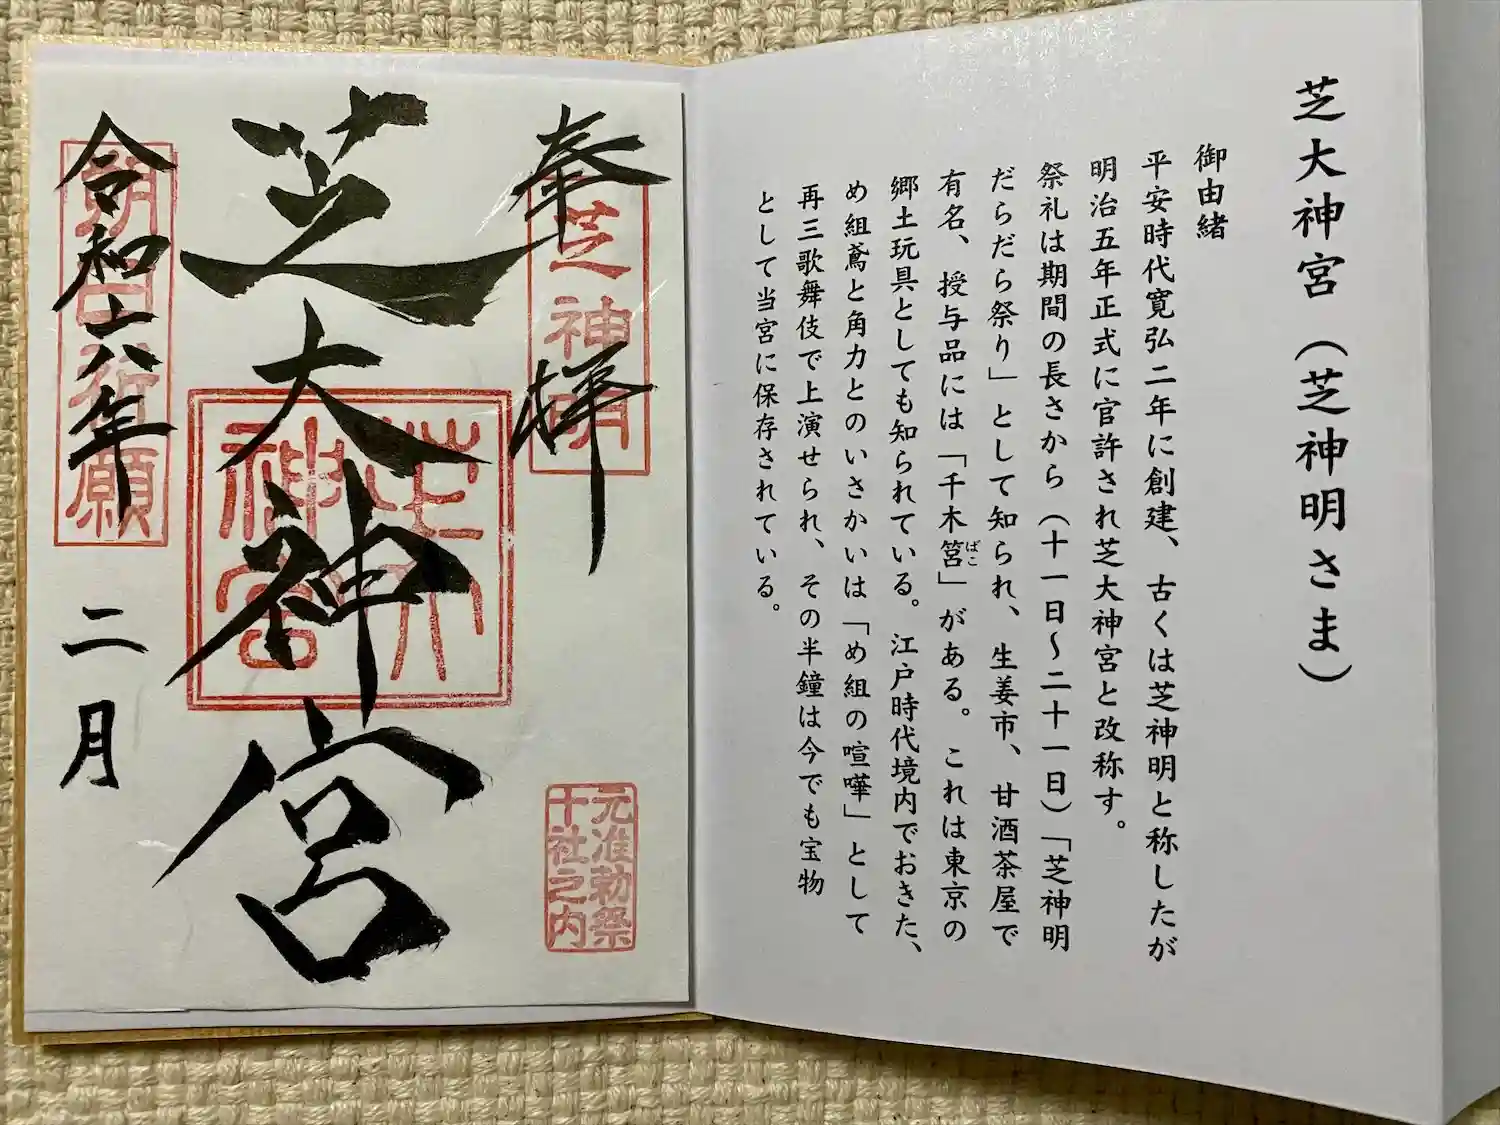 芝大神宮（芝神明さま）
御由緒
平安時代寛弘二年に創建、古くは芝神明と称したが
明治五年正式に官許され芝大神宮と改称す。
祭礼は期間の長さから（十一日～二十一日）「芝神明
だらだら祭り」として知られ、生姜市、甘酒茶屋で
有名、授与品には「千木筥」がある。これは東京の
ばこ
郷土玩具としても知られている。江戸時代境内でおきた、
め組鳶と角力とのいさかいは「め組の喧嘩」として
再三歌舞伎で上演せられ、その半鐘は今でも宝物
として当宮に保存されている。
奉拝
芝神明
元准勅祭
十社之内
芝大神宮
芝大
神宮
令和六年
二月
朔日祈願